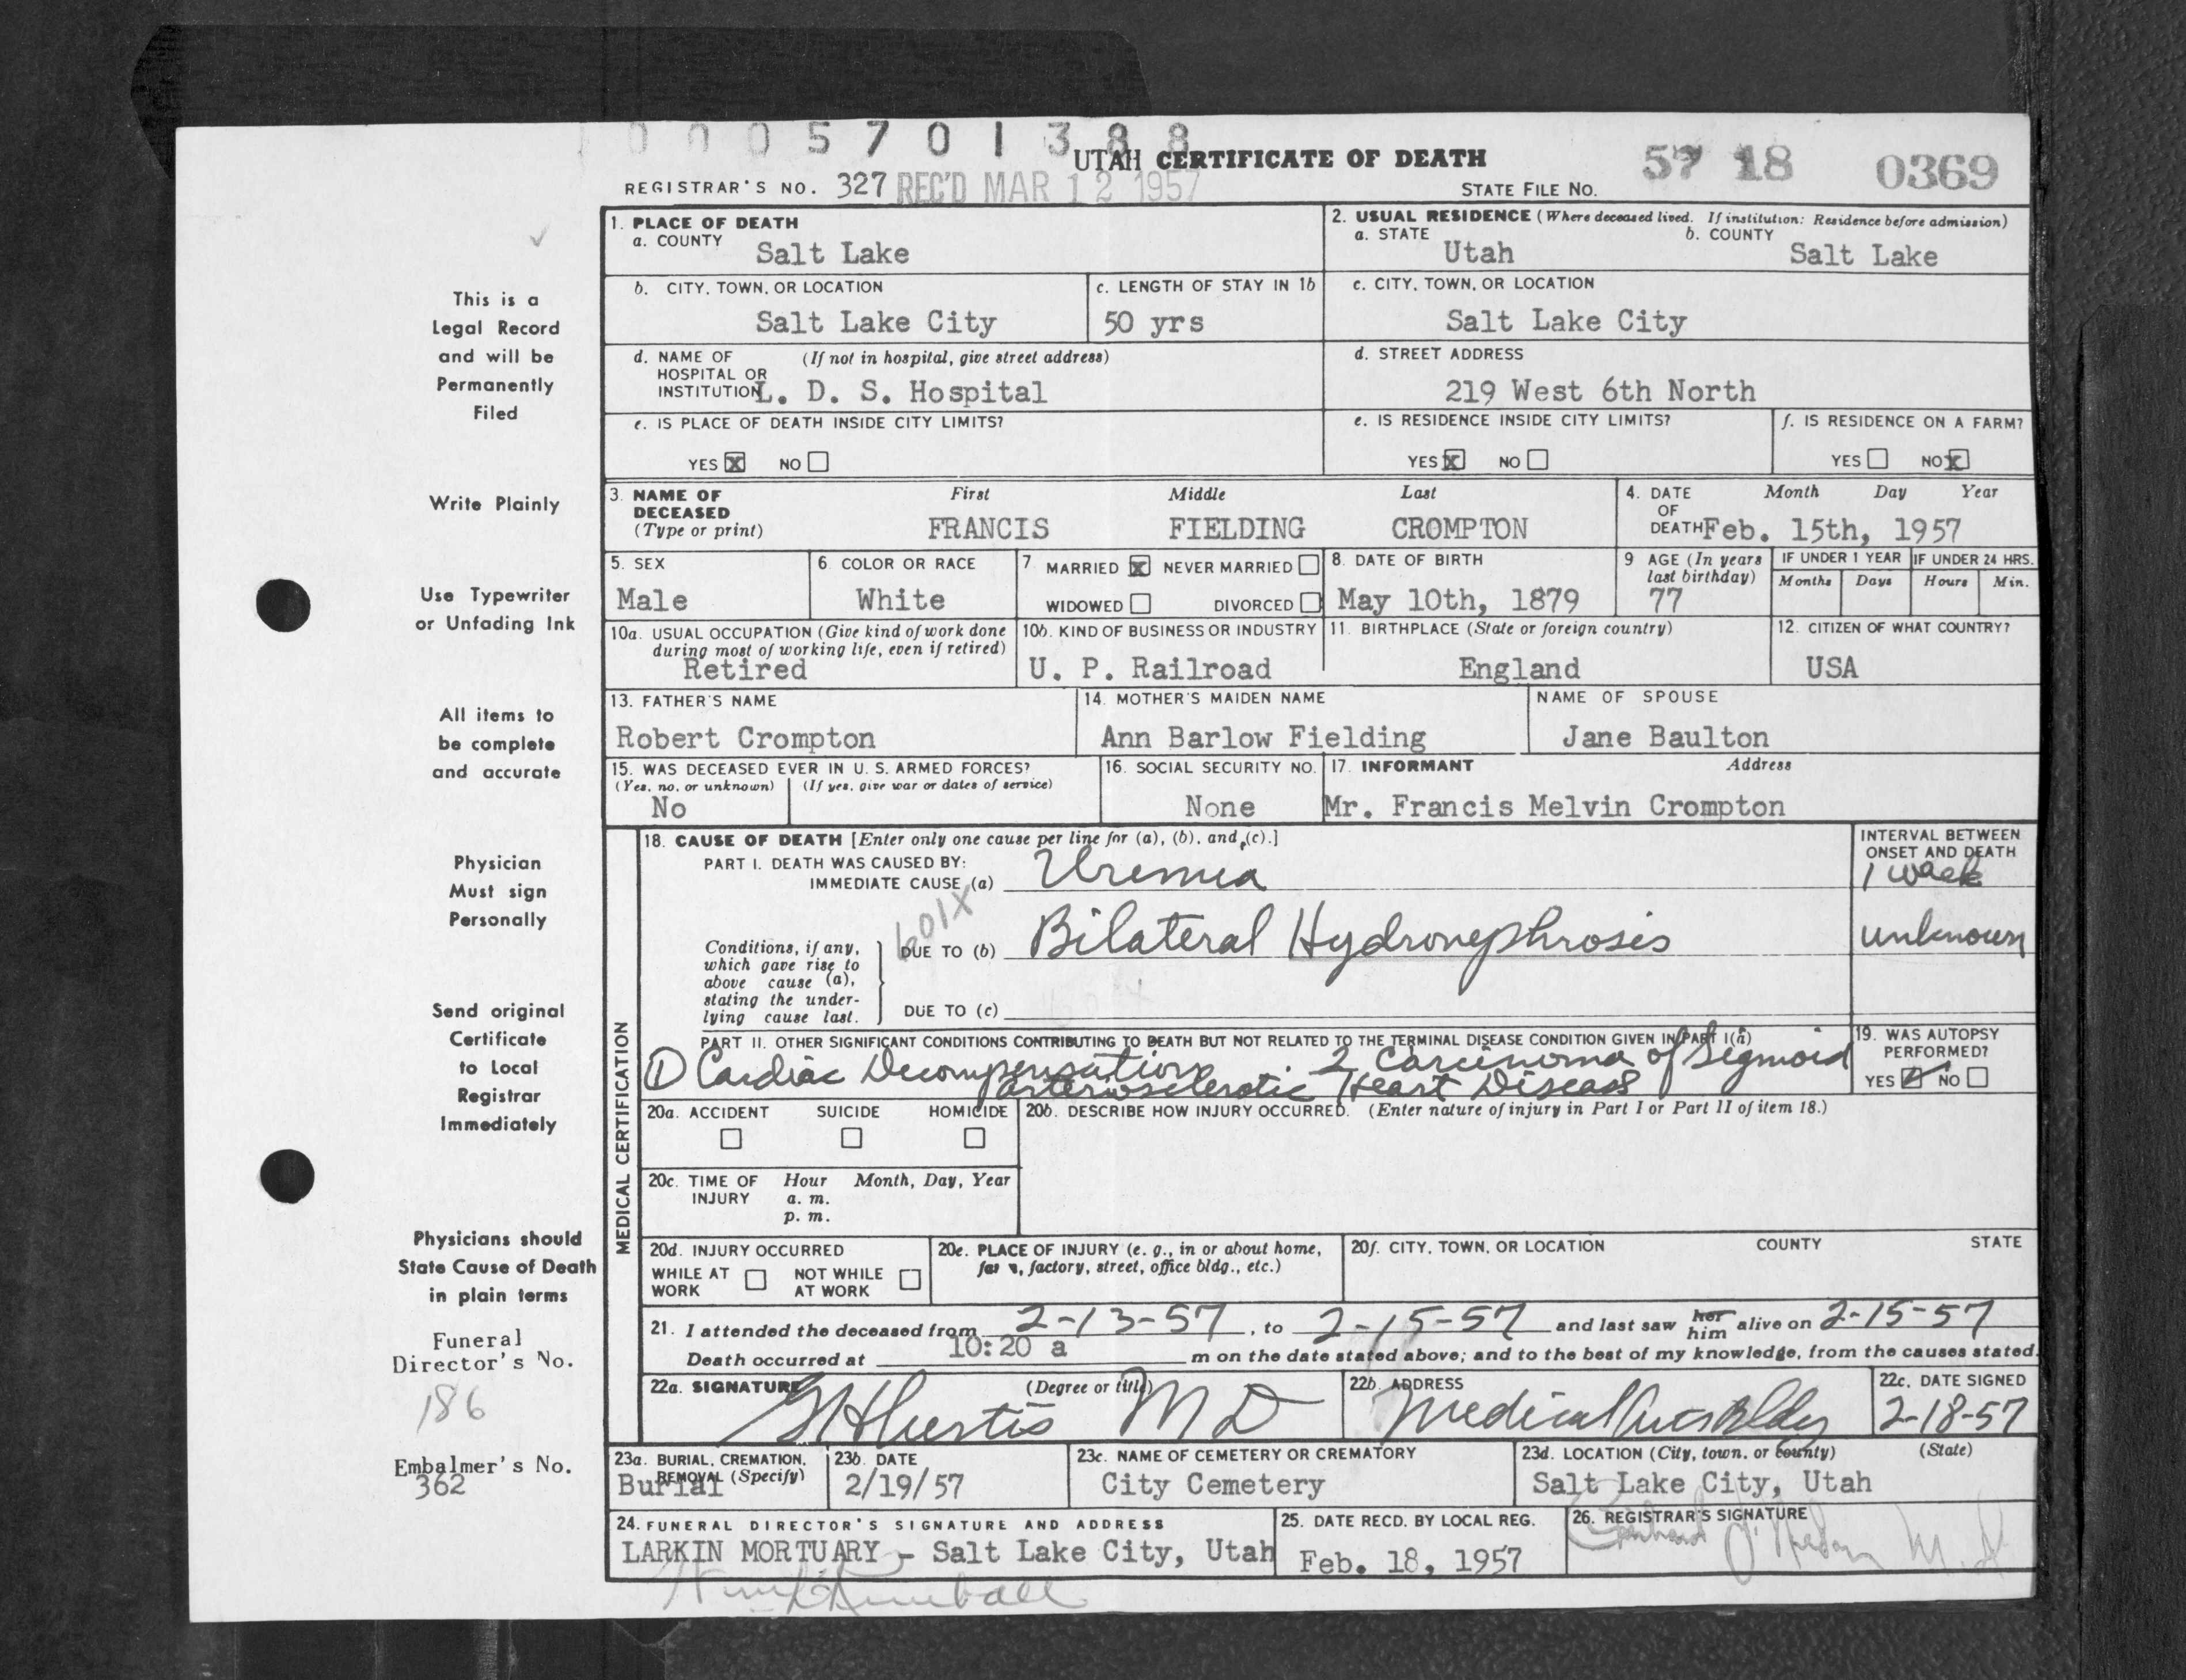 0005701388
UTAH CERTIFICATE OF DEATH
57 18 0369
REGISTRAR'S NO. 327 REC'D MAR 12 1957 STATE FILE NO.
1. PLACE OF DEATH
a. COUNTY Salt Lake
2. USUAL RESIDENCE (Where deceased lived. If institution: Residence before admission)
a. STATE Utah b. COUNTY Salt Lake
b. CITY, TOWN, OR LOCATION Salt Lake City
c. LENGTH OF STAY IN 1b 50 yrs
c. CITY, TOWN, OR LOCATION Salt Lake City
d. NAME OF HOSPITAL OR INSTITUTION (If not in hospital, give street address) L. D. S. Hospital
d. STREET ADDRESS 219 West 6th North
e. IS PLACE OF DEATH INSIDE CITY LIMITS?
YES X NO
e. IS RESIDENCE INSIDE CITY LIMITS?
YES X NO
f. IS RESIDENCE ON A FARM?
YES NO X
3. NAME OF DECEASED (Type or print)
First Middle Last
FRANCIS FIELDING CROMPTON
4. DATE OF DEATH Month Day Year
Feb. 15th, 1957
5. SEX Male
6. COLOR OR RACE White
7. MARRIED X NEVER MARRIED
WIDOWED DIVORCED
8. DATE OF BIRTH May 10th, 1879
9 AGE (In years last birthday) 77
IF UNDER 1 YEAR Months Days
IF UNDER 24 HRS. Hours Min.
10a. USUAL OCCUPATION (Give kind of work done during most of working life, even if retired) Retired
10b. KIND OF BUSINESS OR INDUSTRY U. P. Railroad
11. BIRTHPLACE (State or foreign country) England
12. CITIZEN OF WHAT COUNTRY? USA
13. FATHER'S NAME Robert Crompton
14. MOTHER'S MAIDEN NAME Ann Barlow Fielding
NAME OF SPOUSE Jane Baulton
15. WAS DECEASED EVER IN U. S. ARMED FORCES?
(Yes, no, or unknown) (If yes, give war or dates of service)
No
16. SOCIAL SECURITY NO. None
17. INFORMANT Address
Mr. Francis Melvin Crompton
MEDICAL CERTIFICATION
18. CAUSE OF DEATH [Enter only one cause per line for (a), (b), and (c).]
PART I. DEATH WAS CAUSED BY:
IMMEDIATE CAUSE (a) Uremia
INTERVAL BETWEEN ONSET AND DEATH
1 week
601X
Conditions, if any, which gave rise to above cause (a), stating the underlying cause last.
DUE TO (b) Bilateral Hydronephrosis
unknown
DUE TO (c)
PART II. OTHER SIGNIFICANT CONDITIONS CONTRIBUTING TO DEATH BUT NOT RELATED TO THE TERMINAL DISEASE CONDITION GIVEN IN PART I(a)
1 Cardiac Decompensation. 2 Carcinoma of Sigmoid
arteriosclerotic Heart Disease
19. WAS AUTOPSY PERFORMED?
YES NO
20a. ACCIDENT SUICIDE HOMICIDE
20b. DESCRIBE HOW INJURY OCCURRED. (Enter nature of injury in Part I or Part II of item 18.)
20c. TIME OF INJURY Hour Month, Day, Year
a. m.
p. m.
20d. INJURY OCCURRED
WHILE AT WORK NOT WHILE AT WORK
20e. PLACE OF INJURY (e. g., in or about home, farm, factory, street, office bldg., etc.)
20f. CITY, TOWN, OR LOCATION COUNTY STATE
21. I attended the deceased from 2-13-57, to 2-15-57 and last saw her him alive on 2-15-57
Death occurred at 10:20 a m on the date stated above; and to the best of my knowledge, from the causes stated.
22a. SIGNATURE (Degree or title)
M D
22b. ADDRESS
Medical Arts Bldg
22c. DATE SIGNED
2-18-57
23a. BURIAL, CREMATION, REMOVAL (Specify) Burial
23b. DATE 2/19/57
23c. NAME OF CEMETERY OR CREMATORY City Cemetery
23d. LOCATION (City, town, or county) (State)
Salt Lake City, Utah
24. FUNERAL DIRECTOR'S SIGNATURE AND ADDRESS
LARKIN MORTUARY - Salt Lake City, Utah
25. DATE RECD. BY LOCAL REG.
Feb. 18, 1957
26. REGISTRAR'S SIGNATURE
M. D
Kimball
This is a
Legal Record
and will be
Permanently
Filed
Write Plainly
Use Typewriter
or Unfading Ink
All items to
be complete
and accurate
Physician
Must sign
Personally
Send original
Certificate
to Local
Registrar
Immediately
Physicians should
State Cause of Death
in plain terms
Funeral
Director's No.
186
Embalmer's No.
362